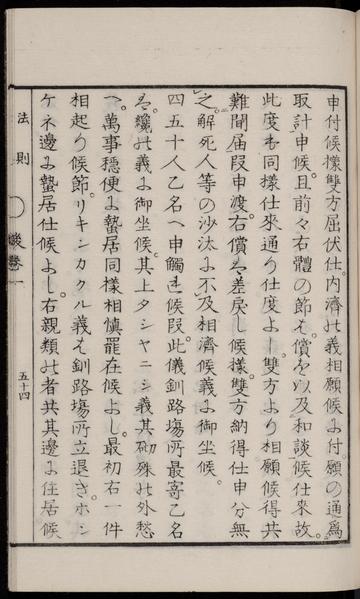 申付候樣雙方屈伏仕。内濟の義相願候よ付。願の通爲
取計申候。且前々右體の節も。償を以及和談候仕來故。
此度も同樣仕來通り仕度よし雙方より相願候得共
難聞届段申渡。右償は差戻し候樣。雙方納得仕申分無
之。解死人等の沙汰よ不及相濟候義よ御坐候。
四五十人乙名へ申觸候段。此儀釧路塲所最寄乙名
は。纔の義よ御坐候。其上タシヤニシ義其砌殊の外愁
へ。萬事穩便よ蟄居同樣相愼罷在候よし。最初右一件
相起り候節。リキシカクル義も釧路塲所立退き。ホン
ケネ邊よ蟄居仕候よし。右親類の者共其邊よ住居候
法則
幾卷一
五十四